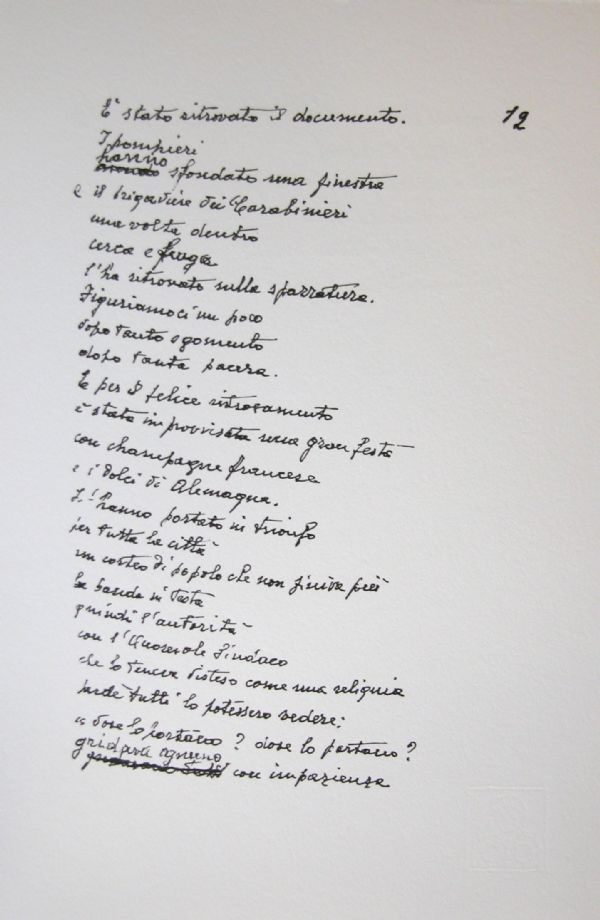 È stato ritrovato il documento.
12
I pompieri
hanno
sfondato una finestra
e il brigadiere dei Carabinieri
una volta dentro
cerca e fruga
l'ha ritrovato nella spazzatura.
Figuriamoci un poco
dopo tanto sgomento
dopo tanta
E per il felice ritrovamento
è stata improvvisata una gran festa
con champagne francese
e i dolci di Alemagna.
L'hanno portato in trionfo
per tutta la città
un corteo di popolo che non finiva più
la banda in testa
quindi l'autorità
con l'Onorevole Sindaco
che lo teneva disteso come una reliquia
perché tutti lo potessero vedere:
"dove lo portano? dove lo portano?
gridava ognuno
con impazienza